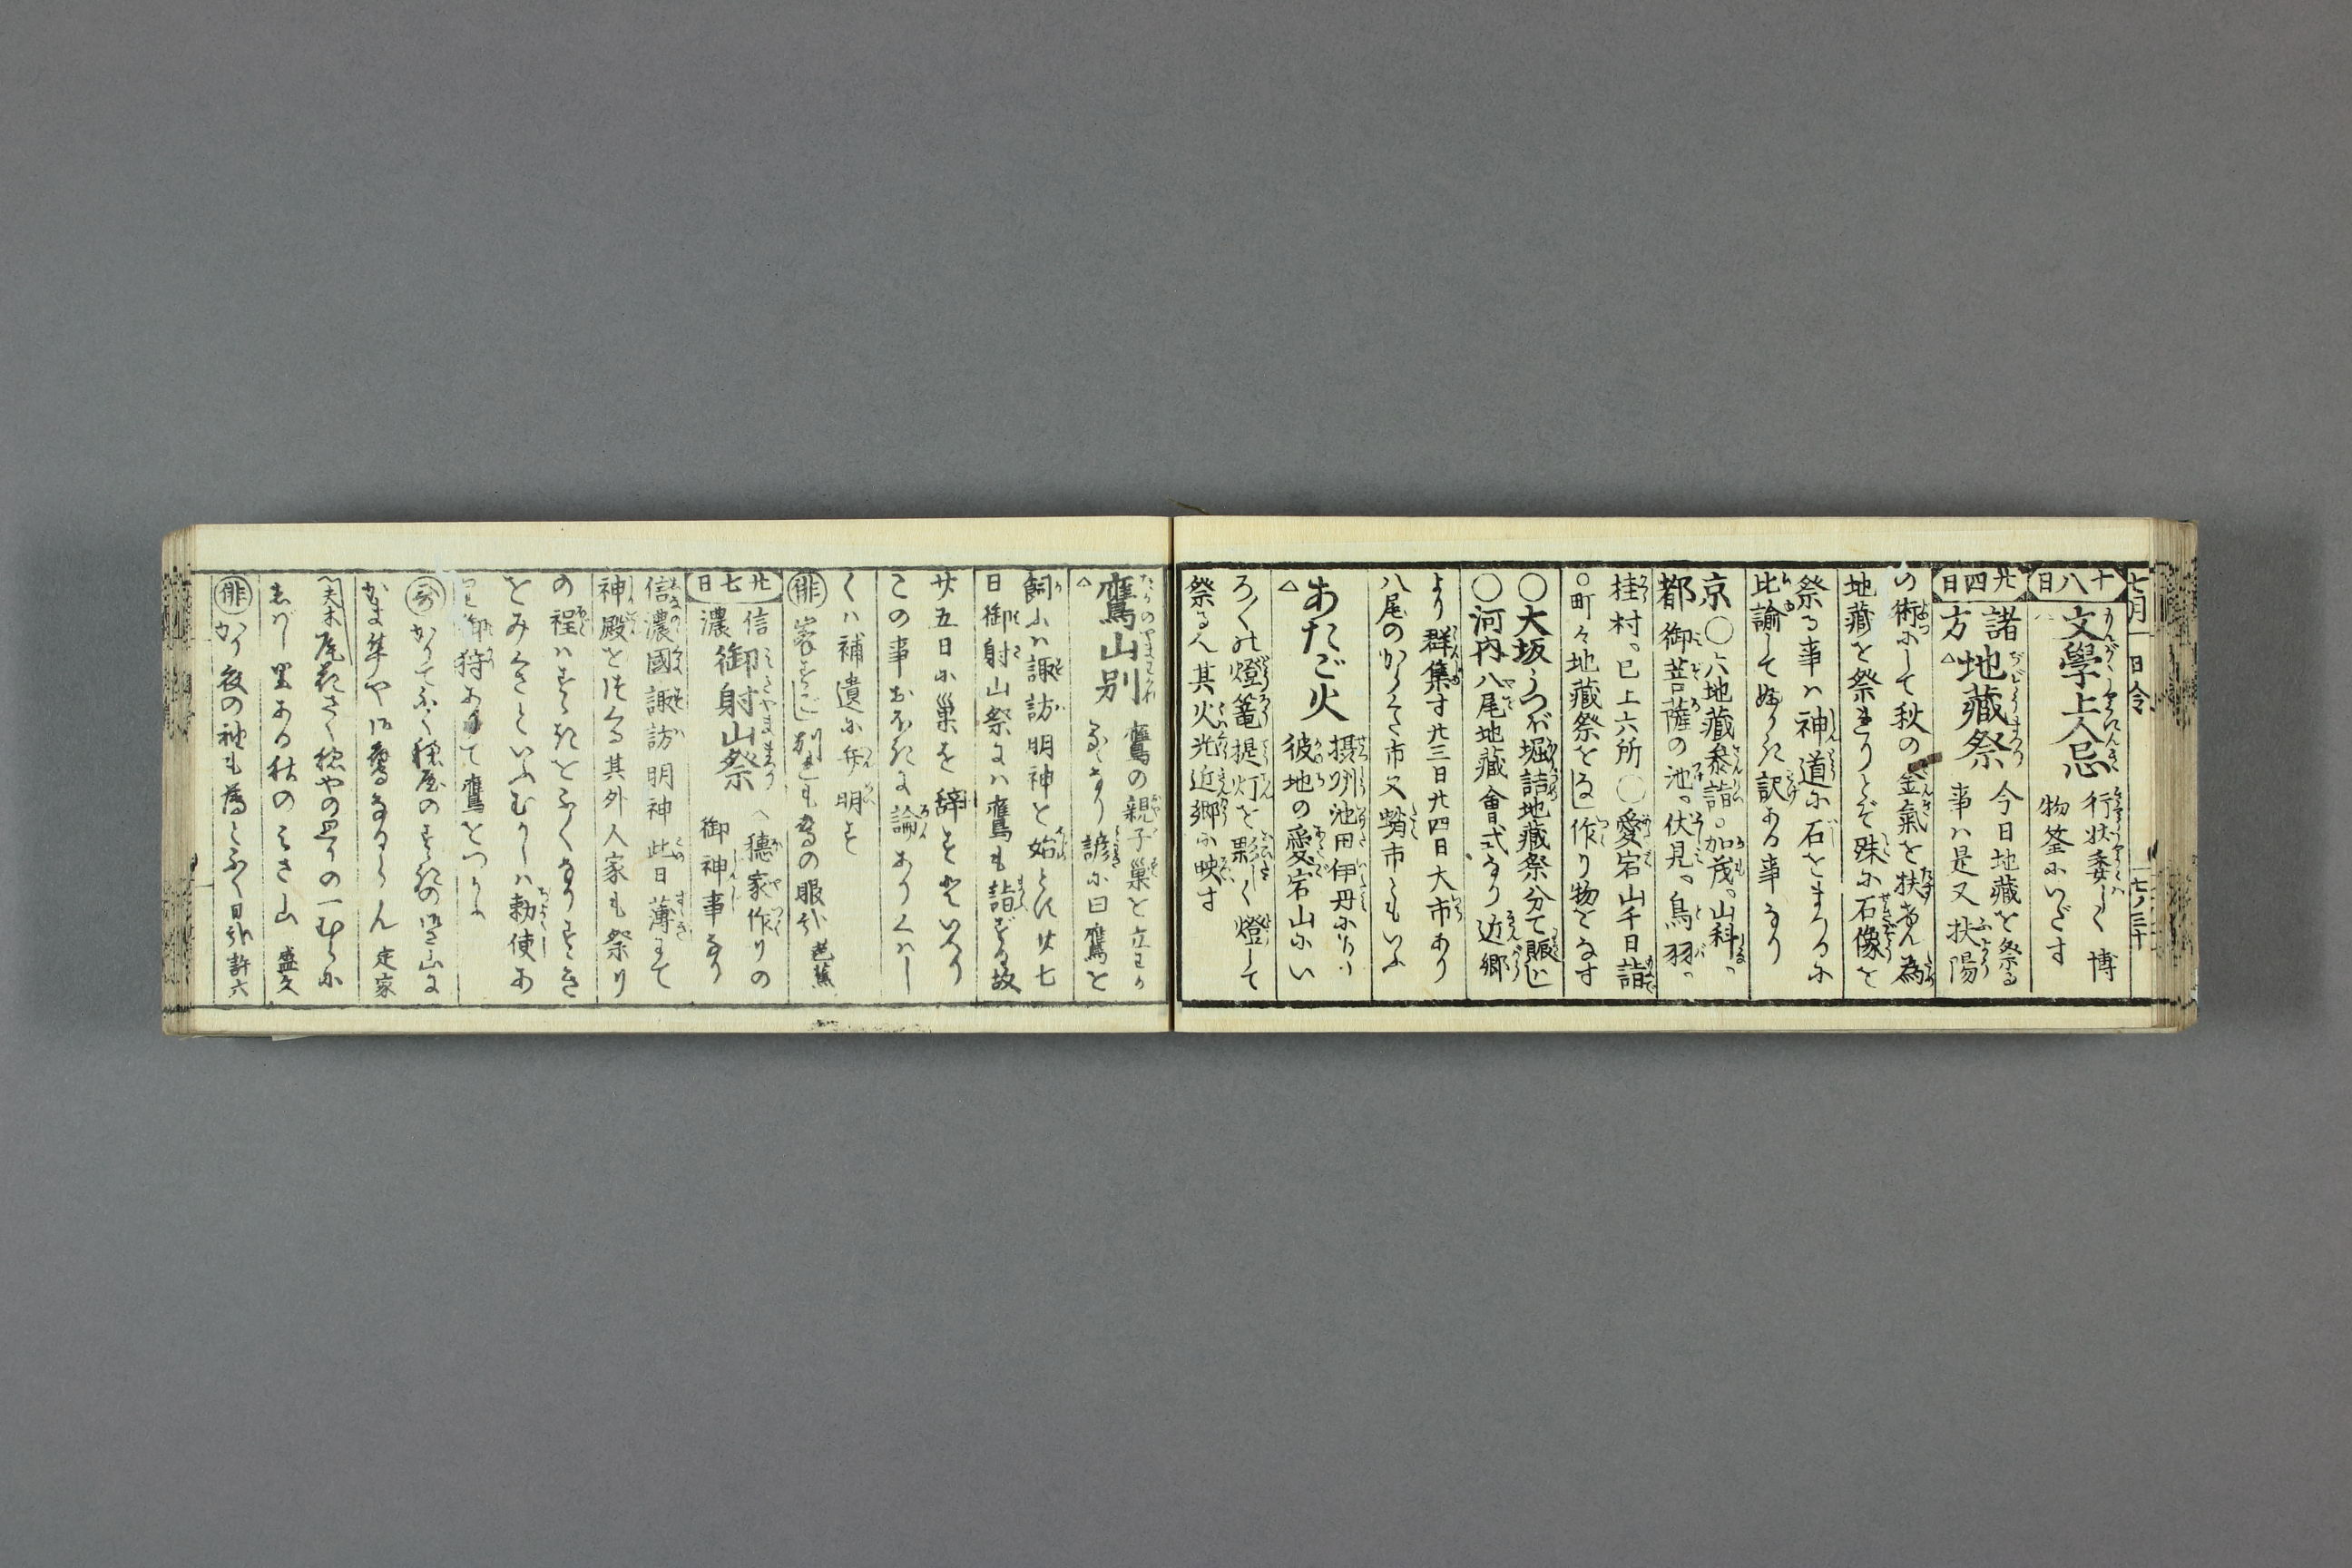 七月一日令
七ノ三十
十八日
文學上人忌
行状委しくハ博
物筌にいだす
廿四日
諸方
地藏祭
今日地藏を祭る
事ハ是又扶陽
の術にして秋の金氣を扶けん為
地藏を祭 れりとぞ殊に石像を
祭る事ハ神道に石をまつるに
比諭して 訳ある事なり
京都
〇六地藏参詣。加茂。山科。
御菩薩の池。伏見。鳥羽。
桂村。已上六所〇愛宕山千日詣
〇町々地藏祭をなし作り物をなす
〇大坂うつぼ堀詰地藏祭分て賑し
〇河内八尾地藏會式なり近郷
より群集す廿三日廿四日大市あり
八尾の 市又蛸市ともいふ
あたご火
摂州池田伊丹にあり
彼地の愛宕山にい
ろ〳〵の燈篭提灯を夥しく燈して
祭る人其火光近郷に映す
鷹山別
鷹の親子巣を立わか
るゝなり諺に曰鷹を
飼ふハ諏訪明神を始とし廿七
日御射山祭にハ鷹も詣ずる故
廿五日に巣を辞すといへり
この事おほきに論ありくハし
くハ補遺に弁明す
俳
の眼 芭蕉
廿七日
信濃
御射山祭
穂家作りの
御神事なり
信濃國諏訪明神此日薄にて
神殿をつくる其外人家も祭り
の程ハすゝきをふくなりすゝき
をみくさといふむかしハ勅使あ
御狩ありて鷹をつかふ
哥
かりてふく穂屋のすゝきの みさ山に
なるらん 定家
夫木
尾花ふく穂やの の一むらに
しばし里ある秋のみさ山 盛久
俳
かり夜の袖も ふく日和 許六